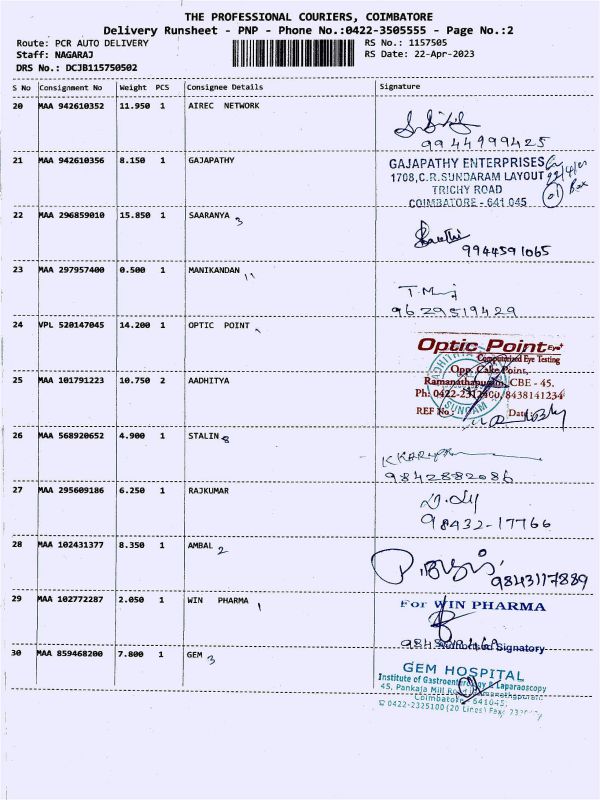 THE PROFESSIONAL COURIERS, COIMBATORE
Delivery Runsheet - PNP - Phone No.:0422-3505555 - Page No.:2
Route: PCR AUTO DELIVERY RS No.: 1157505
Staff: NAGARAJ RS Date: 22-Apr-2023
DRS No.: DCJB115750502
S No Consignment No Weight PCS Consignee Details Signature
20 MAA 942610352 11.950 1 AIREC NETWORK
9944999425
21 MAA 942610356 8.150 1 GAJAPATHY
GAJAPATHY ENTERPRISES
1708,C.R.SUNDARAM LAYOUT
TRICHY ROAD
COIMBATORE - 641 045
01 Box
22 MAA 296859010 15.850 1 SAARANYA 3
9944591065
23 MAA 297957400 0.500 1 MANIKANDAN 11
9629519429
24 VPL 520147045 14.200 1 OPTIC POINT
Optic Point Eye+
Computerised Eye Testing
Opp. Cake Point,
Ramanathapuram, CBE - 45.
Ph: 0422-2312400, 8438141234
REF No.: Date
25 MAA 101791223 10.750 2 AADHITYA
26 MAA 568920652 4.900 1 STALIN 8
9842882086
27 MAA 295609186 6.250 1 RAJKUMAR
98432-17766
28 MAA 102431377 8.350 1 AMBAL 2
9843117889
29 MAA 102772287 2.050 1 WIN PHARMA 1
For WIN PHARMA
Authorised Signatory
30 MAA 859468200 7.800 1 GEM 3
GEM HOSPITAL
Institute of Gastroenterology & Laparaoscopy
45, Pankaja Mill Road, Ramanathapuram
Coimbatore - 641045,
0422-2325100 (20 Lines) Fax: